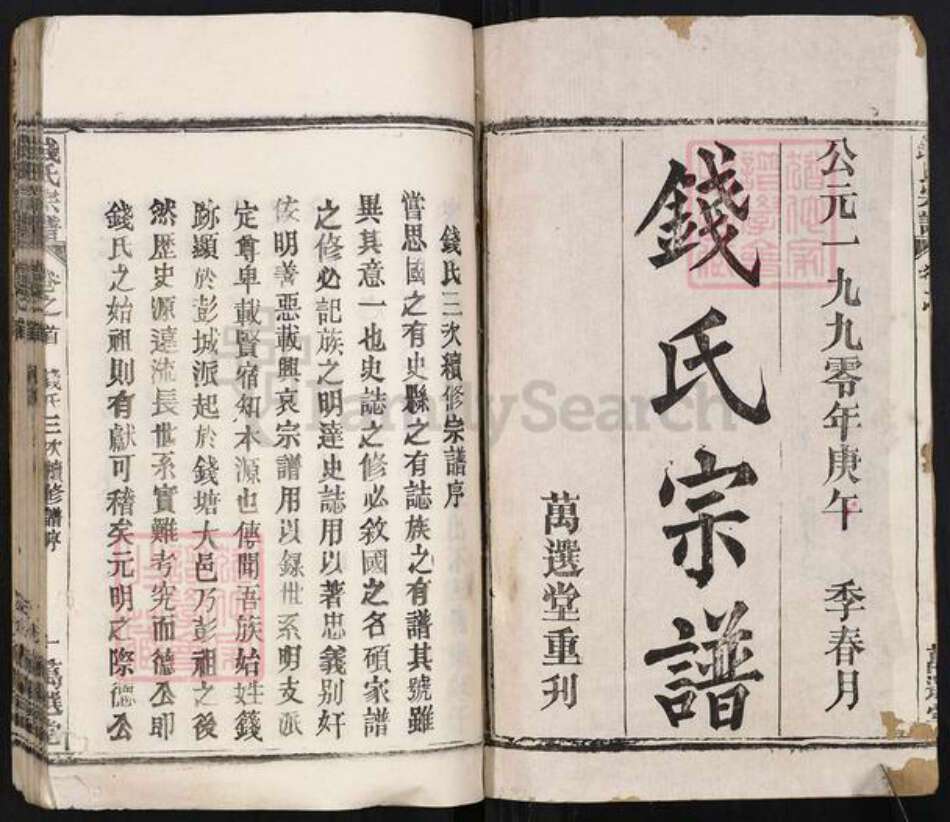 公元一九九零年庚午 季春月
錢氏宗譜
萬選堂重刋
錢氏三次續修宗譜序
嘗思國之有史縣之有誌族之有譜其號雖
異其意一也史誌之修必敘國之名碩家譜
之修必記族之明達史誌用以著忠義别奸
佞明善惡載興哀宗譜用以錄世系明支派
定尊卑載賢宿知木源也傳聞吾族始姓錢
跡顯於彭城派起於錢塘大邑乃彭祖之後
然歴史源遠流長世系實難考究而德公即
錢氏之始祖則有獻可稽矣元明之際德公
錢氏宗譜 卷之首 錢氏三次續修譜序 一 萬選堂
FamilySearch